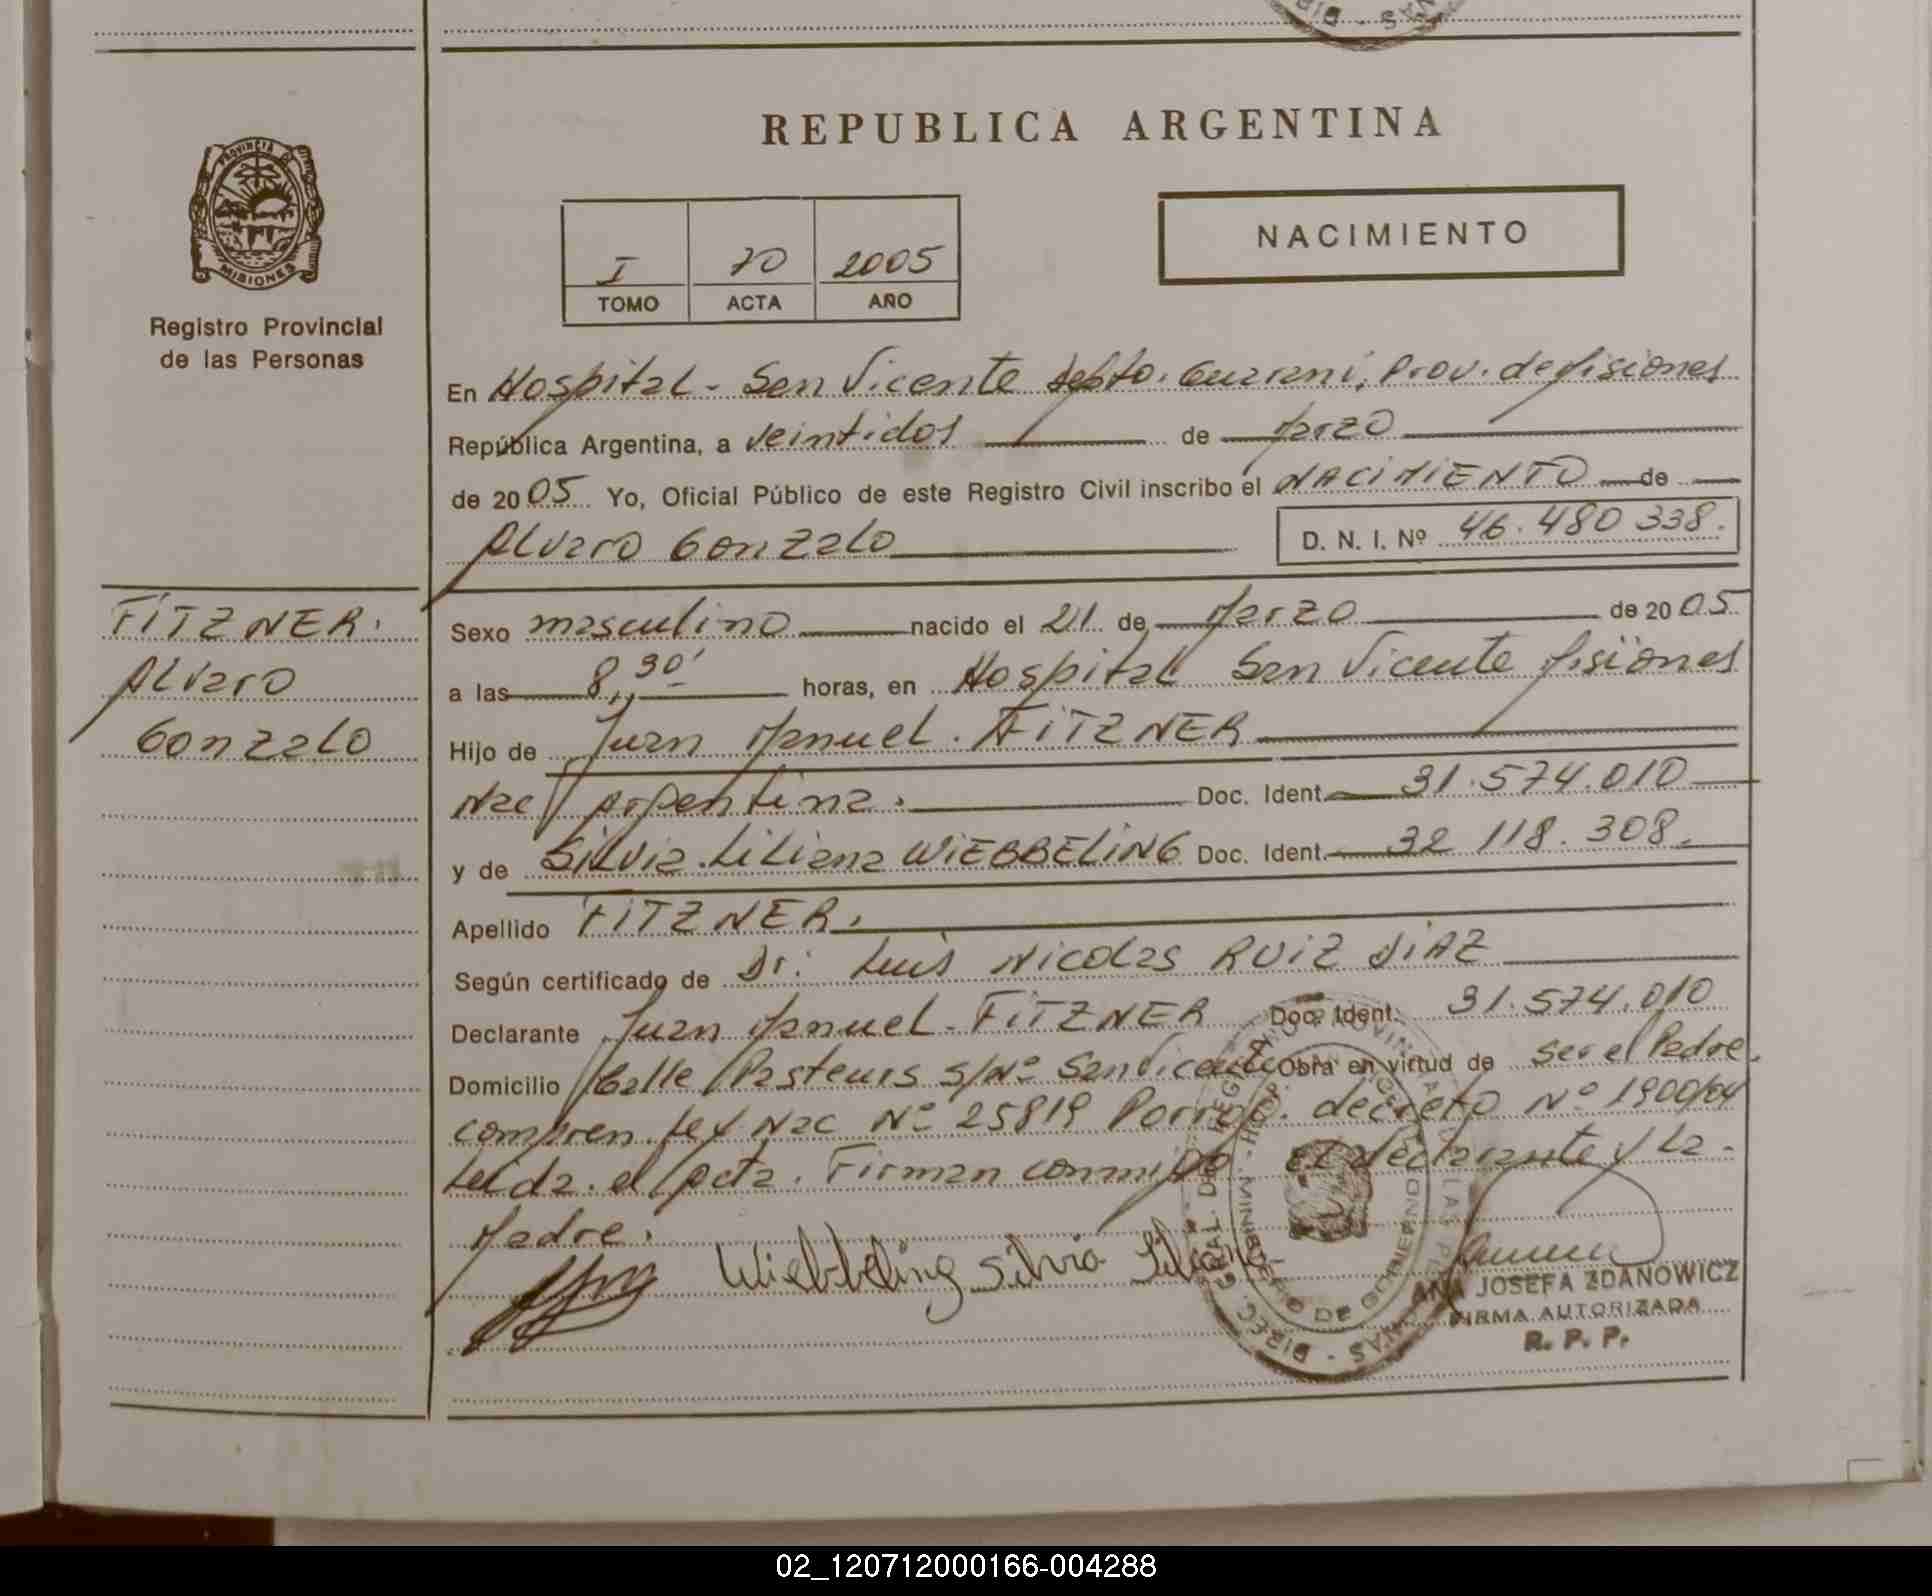 REPUBLICA ARGENTINA
PROVINCIA DE
MISIONES
Registro Provincial
de las Personas
I 70 2005
TOMO ACTA AÑO
NACIMIENTO
En Hospital - San Vicente Depto. Guarani, Prov. de Misiones
República Argentina, a veintidos de Marzo
de 20 05 Yo, Oficial Público de este Registro Civil inscribo el NACIMIENTO de
Alvaro Gonzalo
D. N. I. Nº 46.480 338.
FITZNER.
Alvaro
Gonzalo
Sexo masculino nacido el 21 de Marzo de 20 05
a las 8,,30' horas, en Hospital San Vicente Misiones
Hijo de Juan Manuel. FITZNER
Nac Argentina. Doc. Ident. 31.574.010
y de Silvia. Liliana WIEBBELING Doc. Ident. 32 118.308.
Apellido FITZNER.
Según certificado de Dr: Luis Nicolas RUIZ DIAZ
Declarante Juan Manuel - FITZNER Doc. Ident. 31.574.010
Domicilio Calle Pasteurs S/Nº San Vicente Obra en virtud de ser el Padre.
compren. Ley Nac Nº 25819 Porrog. decreto Nº 1900/04
Leida. el Acta. Firman conmigo El declarante y La -
Madre.
Wiebbeling Silvia Liliana
ANA JOSEFA ZDANOWICZ
FIRMA AUTORIZADA
R. P. P.
02_120712000166-004288